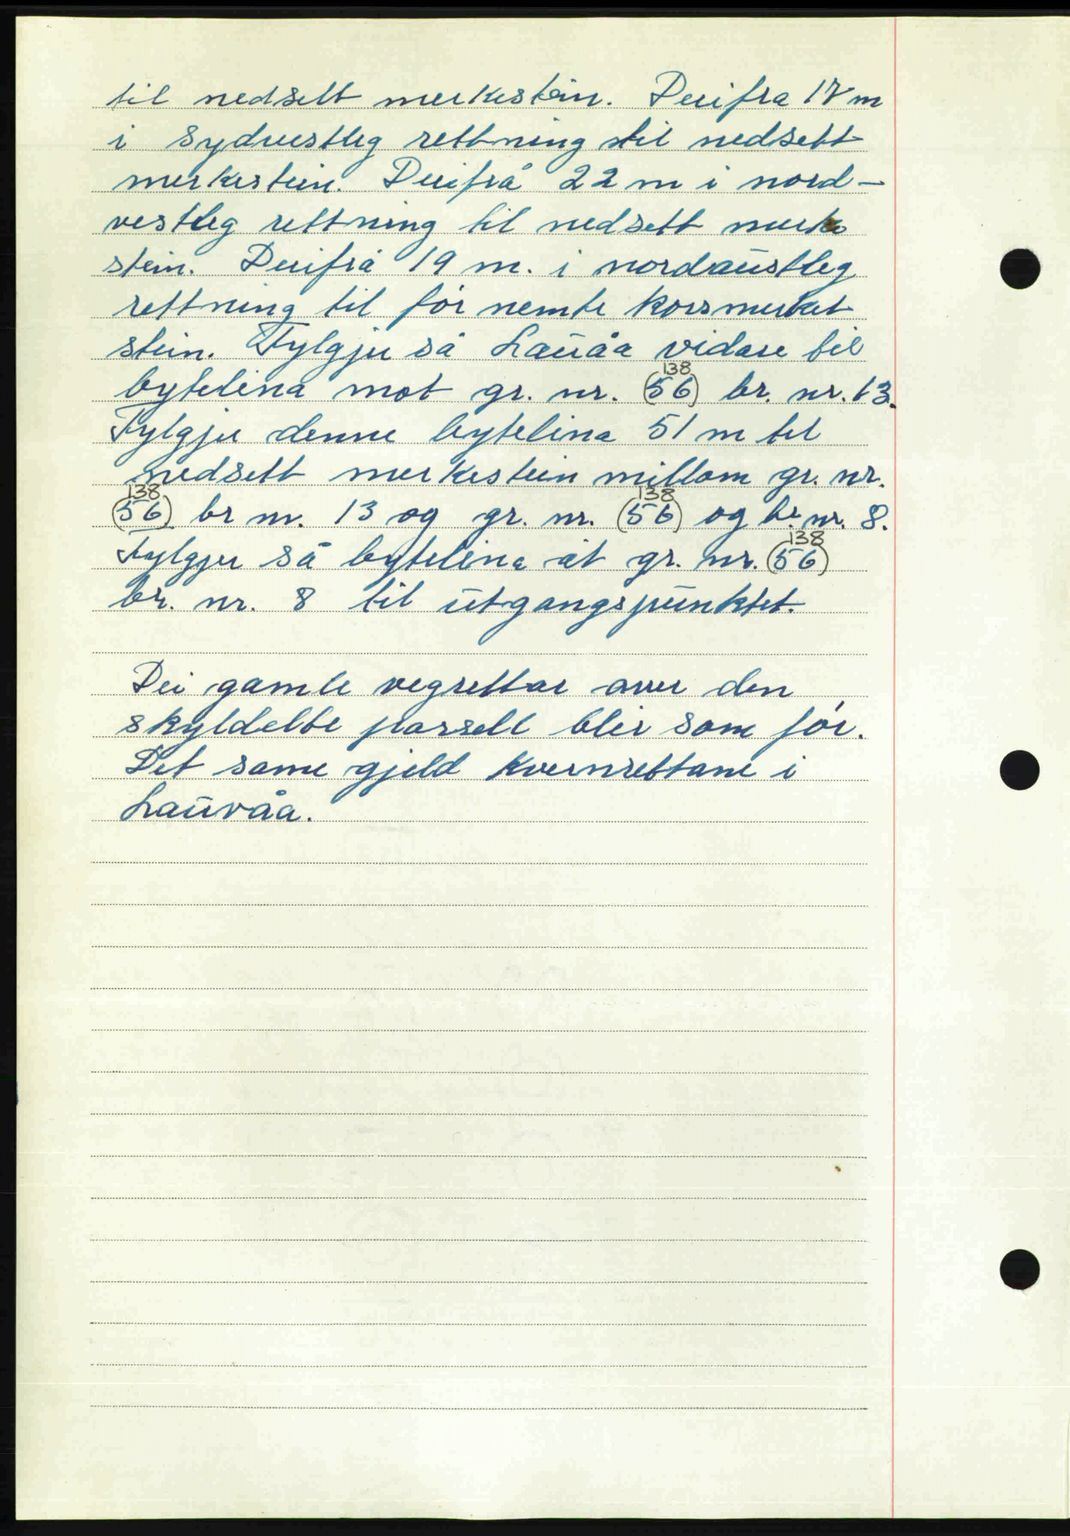 til nedsett merkestein. Derifra 17 m
i Sydvestleg rettning til nedsett
merkestein. Derifrå 22 m i nord-
vestleg rettning til nedsett merke
stein. Derifrå 19 m. i nordaustleg
rettning til før nemte korsmerket
stein. Fylgjer så Lauåa vidare til
138
bytelina mot gr. nr. (56) br. nr. 13.
Fylgjer denne bytelina 51 m til
nedsett merkestein millom gr. nr.
138 138
(56) br nr. 13 og gr. nr. (56) og br. nr. 8.
138
Fylgjer så bytelina åt gr. nr. (56)
br. nr. 8 til utgangspunktet.
Dei gamle vegrettar over den
skyldelte parsell blir som før.
Det same gjeld kvernrettane i
Lauvåa.